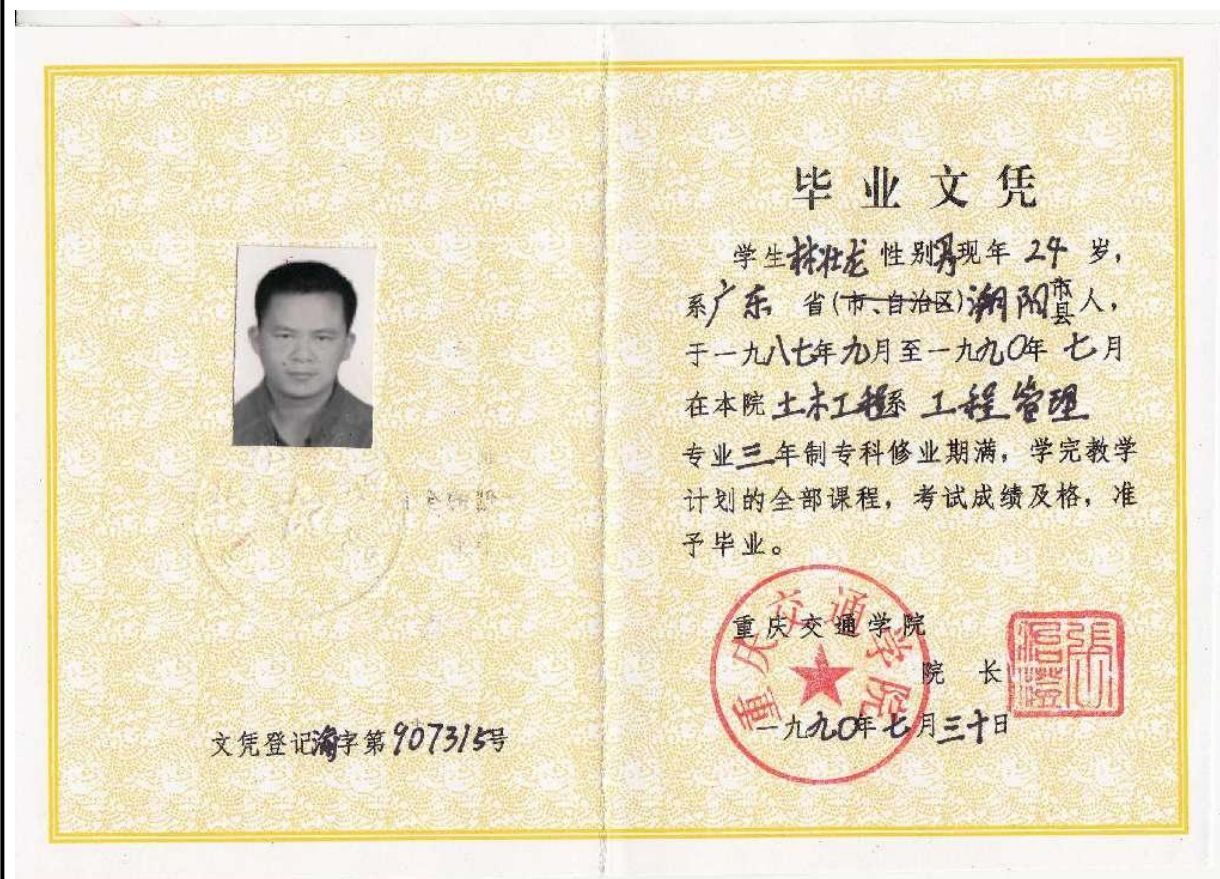 文凭登记渝字第907315号
毕业文凭
学生林壮龙 性别男现年 24 岁,
系广东 省(市、自治区)潮阳市县人,
于一九八七年九月至一九九〇年 七月
在本院 土木工程系 工程管理
专业三年制专科修业期满,学完教学
计划的全部课程,考试成绩及格,准
予毕业。
重庆交通学院
院 长
一九九〇年七月三十日
重庆交通学院